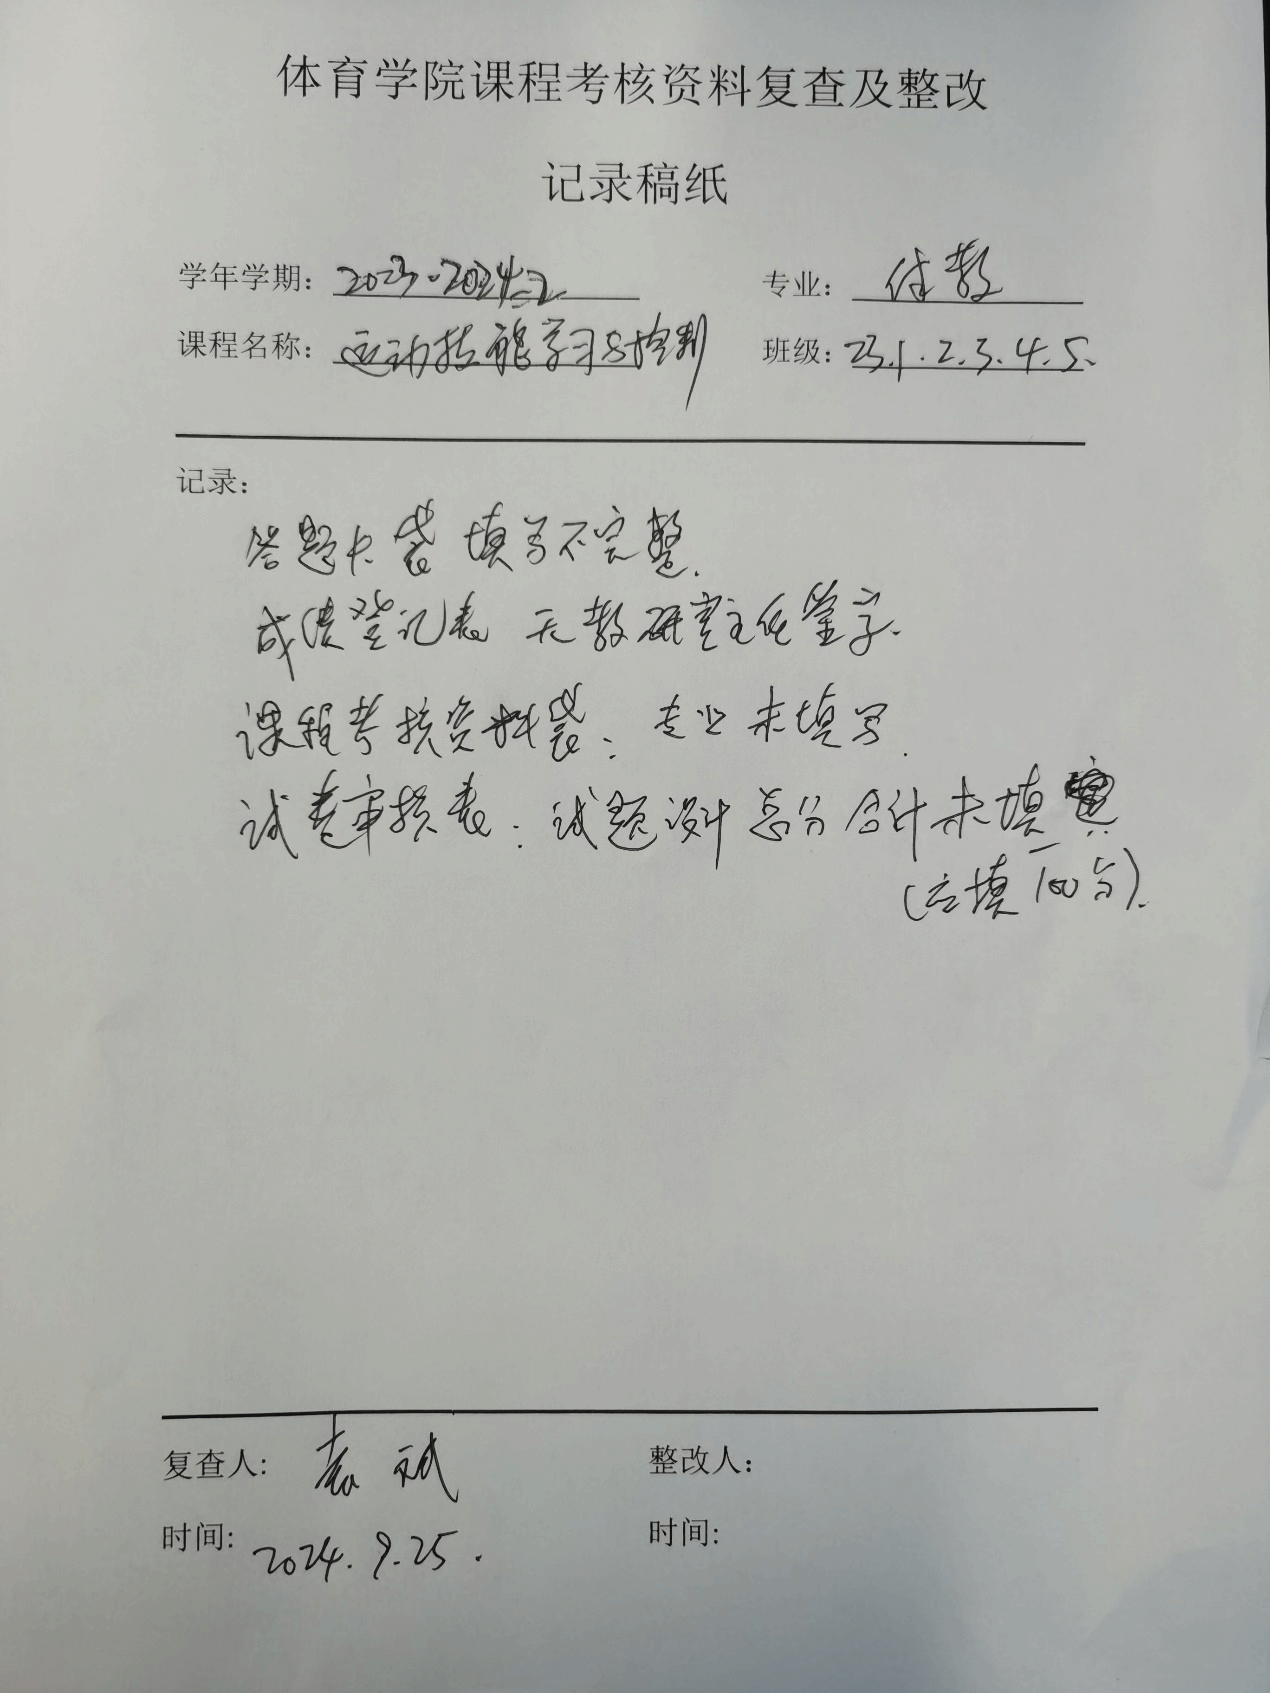 体育学院课程考核资料复查及整改
记录稿纸
学年学期: 2023-2024-2 专业: 体教
课程名称: 运动技能学习与控制 班级: 23.1.2.3.4.5.
记录:
答题卡袋填写不完整.
成绩登记表 无教研室主任签字.
课程考核资料袋: 专业未填写.
试卷审核表: 试题设计总分合计未填
(应填100分).
复查人: 袁斌 整改人:
时间: 2024.9.25. 时间: